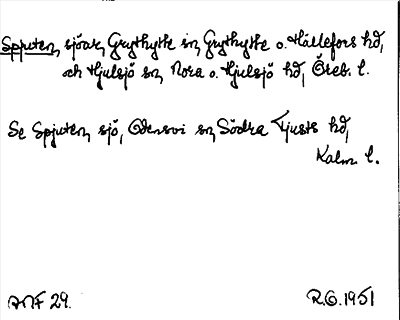 Spjuten, sjöar, Grythytte sn, Grythytte o. Hällefors hd,
och Hjulsjö sn, Nora o. Hjulsjö hd, Öreb. l.
Se Spjuten, sjö, Odensvi sn, Södra Tjusts hd,
Kalm. l.
ANF 29.
R.G. 1951